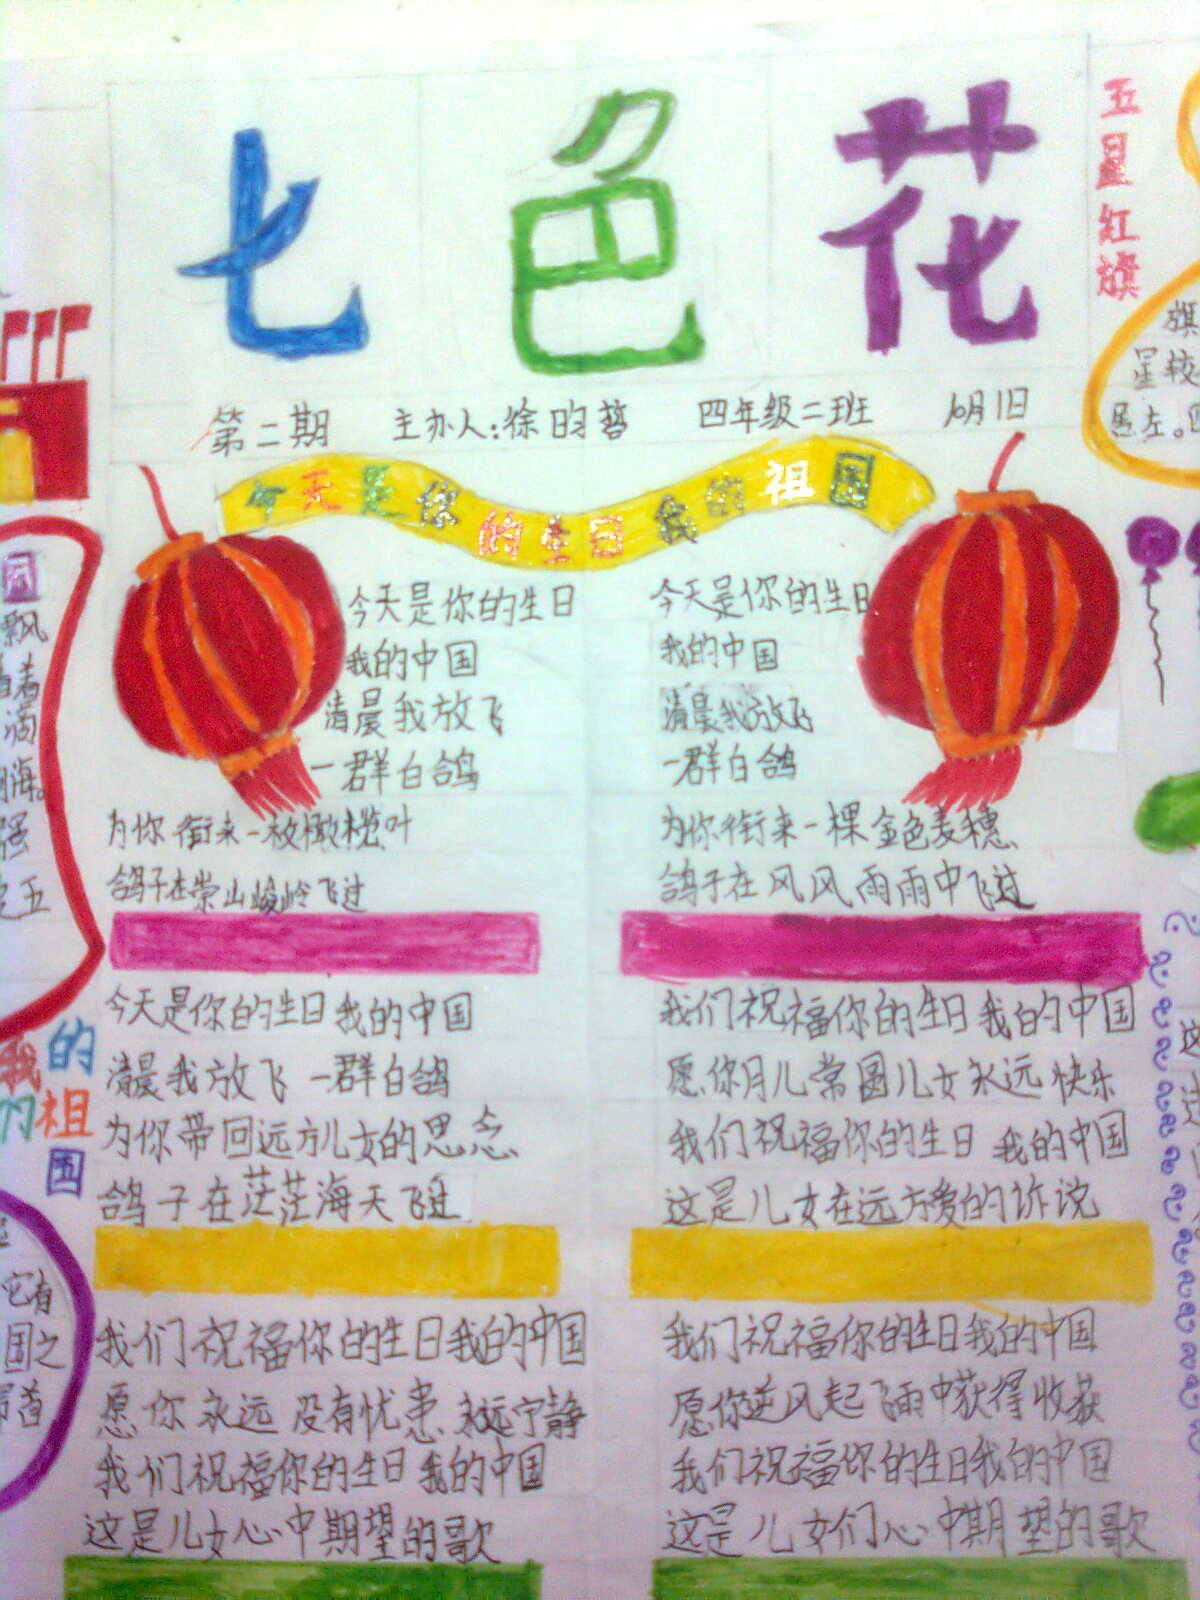 七色花
第二期 主办人:徐昀哲 四年级二班 10月1日
今天是你的生日我的祖国
今天是你的生日
我的中国
清晨我放飞
一群白鸽
为你衔来一枚橄榄叶
鸽子在崇山峻岭飞过
今天是你的生日我的中国
清晨我放飞一群白鸽
为你带回远方儿女的思念
鸽子在茫茫海天飞过
我们祝福你的生日我的中国
愿你永远没有忧患永远宁静
我们祝福你的生日我的中国
这是儿女心中期望的歌
今天是你的生日
我的中国
清晨我放飞
一群白鸽
为你衔来一棵金色麦穗
鸽子在风风雨雨中飞过
我们祝福你的生日我的中国
愿你月儿常圆儿女永远快乐
我们祝福你的生日我的中国
这是儿女在远方爱的诉说
我们祝福你的生日我的中国
愿你逆风起飞雨中获得收获
我们祝福你的生日我的中国
这是儿女们心中期望的歌
五星红旗
旗
星较
居左。
飘
着
强
五
我的
的祖
国
它有
国之